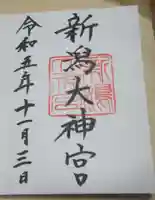 新潟大神宮
令和五年十一月三日